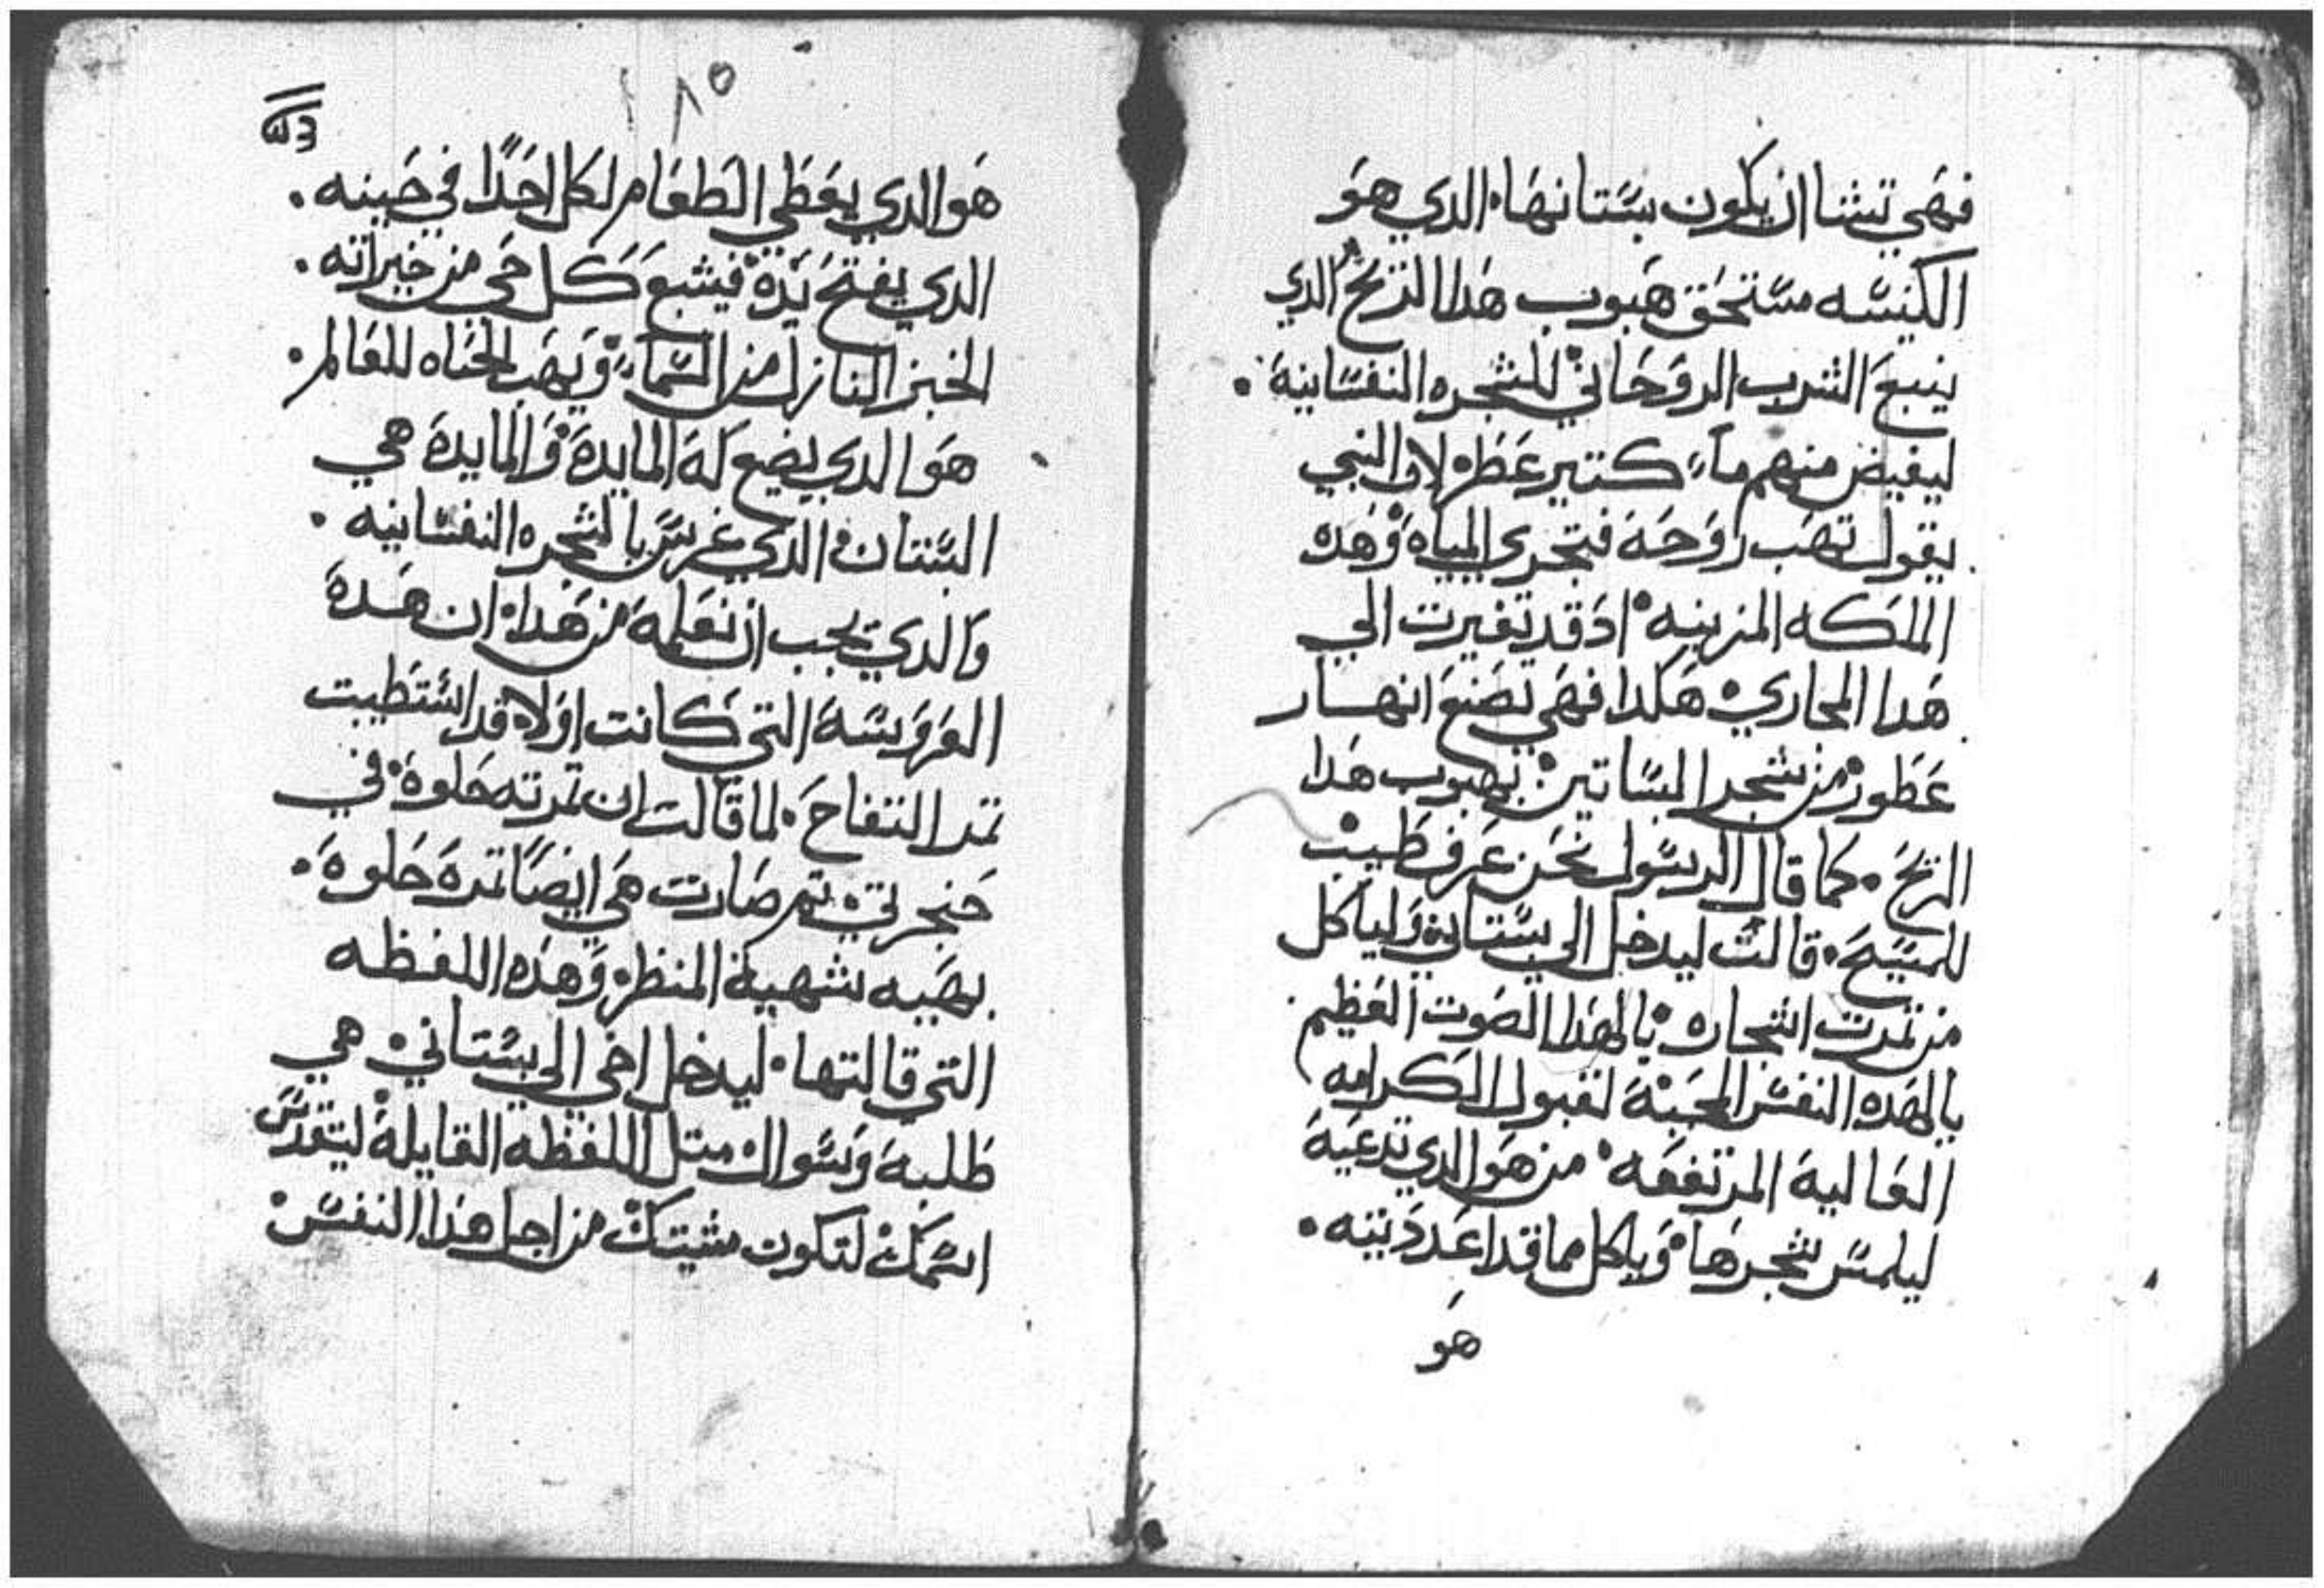 فهي تشا ان يكون بستانها. الدي هو
الكنيسه مستحق هبوب هدا الريح الدي
ينبع الشرب الروحاني للشجره النفسانيه.
ليفيض منهم ماء كتير عطر لاو النبي
يقول تهب روحه فتجري المياه وهده
الملكه المزينه ادقد تغيرت الي
هدا المجاري هكدا فهي تصنع انهار
عطور من شجر البساتين بهبوب هدا
الريح. كما قال الرسول نحن عرف طيب
للمسيح. قالت ليدخل الي بستاني ولياكل
من تمرت اشجاره يالهدا الصوت العظيم
يالهده النفس المحبة لقبول الكرامه
العالية المرتفعه من هو الدي تدعية
ليلمس شجرها وياكل مما قد اعددتته.
هو
١٨٥
هو الدي يعطي الطعام لكل احدا في حينه.
الدي يفتح يده فيشبع كل حي من خيراته.
الخبز النازل من السماء ويهب الحياه للعالم.
هو الدي يضع له المايدة والمايدة هي
البستان الدي غرس بالشجره النفسانيه.
والدي يجب ان نعلمه من هدا ان هده
العروسة التي كانت اولا قد استطيبت
تمر التفاح. لما قالت ان تمرته حلوة في
حنجرتي تم صارت هي ايضا تمرة حلوة.
بهيه شهية المنظر وهده اللفظه
التي قالتها. ليدخل اخي الي بستاني هي
طلبة وسوال متل اللفظه القايلة ليتقدس
اسمك لتكون مشيتك من اجل هدا النفس